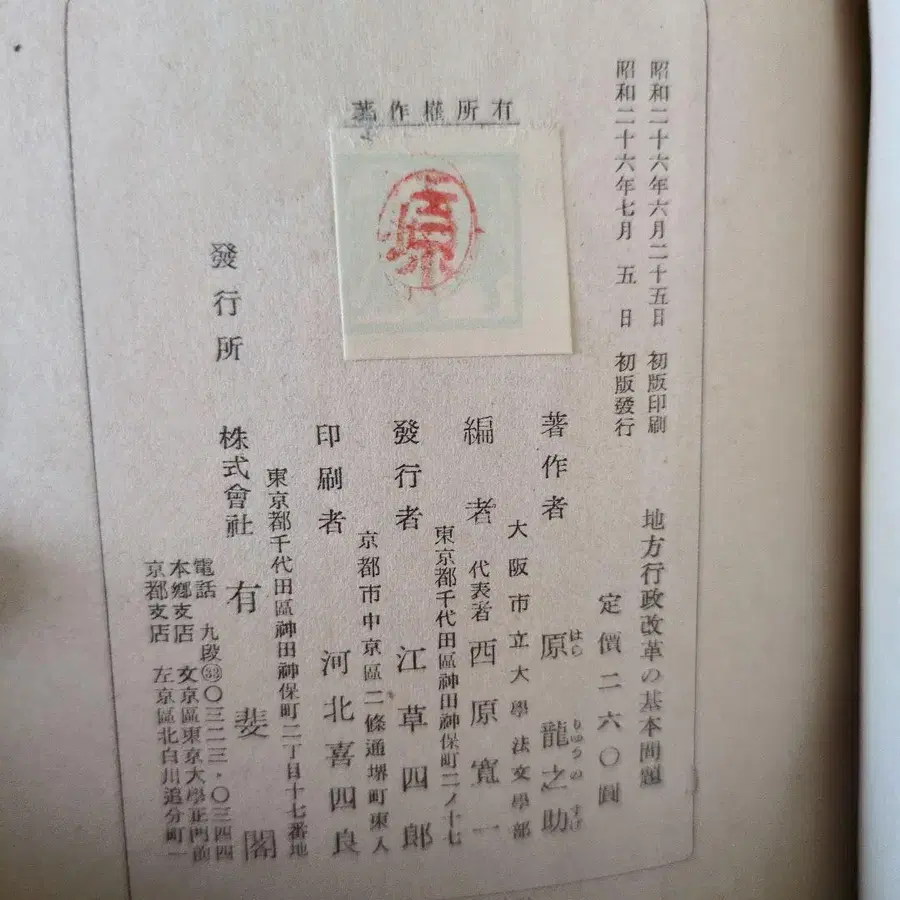 昭和二十六年六月二十五日 初版印刷
昭和二十六年七月 五 日 初版發行
著作權所有
原
地方行政改革の基本問題
定價二六〇圓
著作者 原 龍之助
はら りゆうのすけ
大阪市立大學法文學部
編者 代表者 西原寬一
東京都千代田區神田神保町二ノ十七
發行者 江草四郎
京都市中京區二條通堺町東入
印刷者 河北喜四良
東京都千代田區神田神保町二丁目十七番地
發行所 株式會社 有斐閣
電話 九段㉝〇三二三・〇三四四
本鄕支店 文京區東京大學正門前
京都支店 左京區北白川追分町一